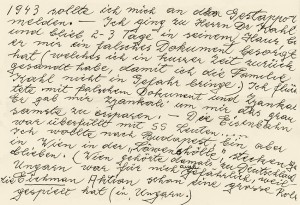 1943 sollte ich mich an der Gestapo
melden. — Ich ging zu Herrn Dr Kahl
und blieb 2-3 Tage in seinem Haus bis
er mir ein falsches Dokument besorgt
hat (welches ich in kurzer Zeit zurück
gesandt habe, damit ich die Familie
Kahl nicht in Gefahr bringe). Ich flüch
tete mit falschem Dokument und
Er gab mir um mir das grau
samste zu ersparen. — Die Eisenbahn
war überfüllt mit SS Leuten...
Ich wollte nach Budapest bin aber
in Wien in der "Löwenhöhle" stecken ge
blieben. (Wien gehörte damals zu Deutschland
Ungarn war für mich gefährlich, weil
die Eichman Aktion schon eine grosse Rolle
gespielt hat (in Ungarn).